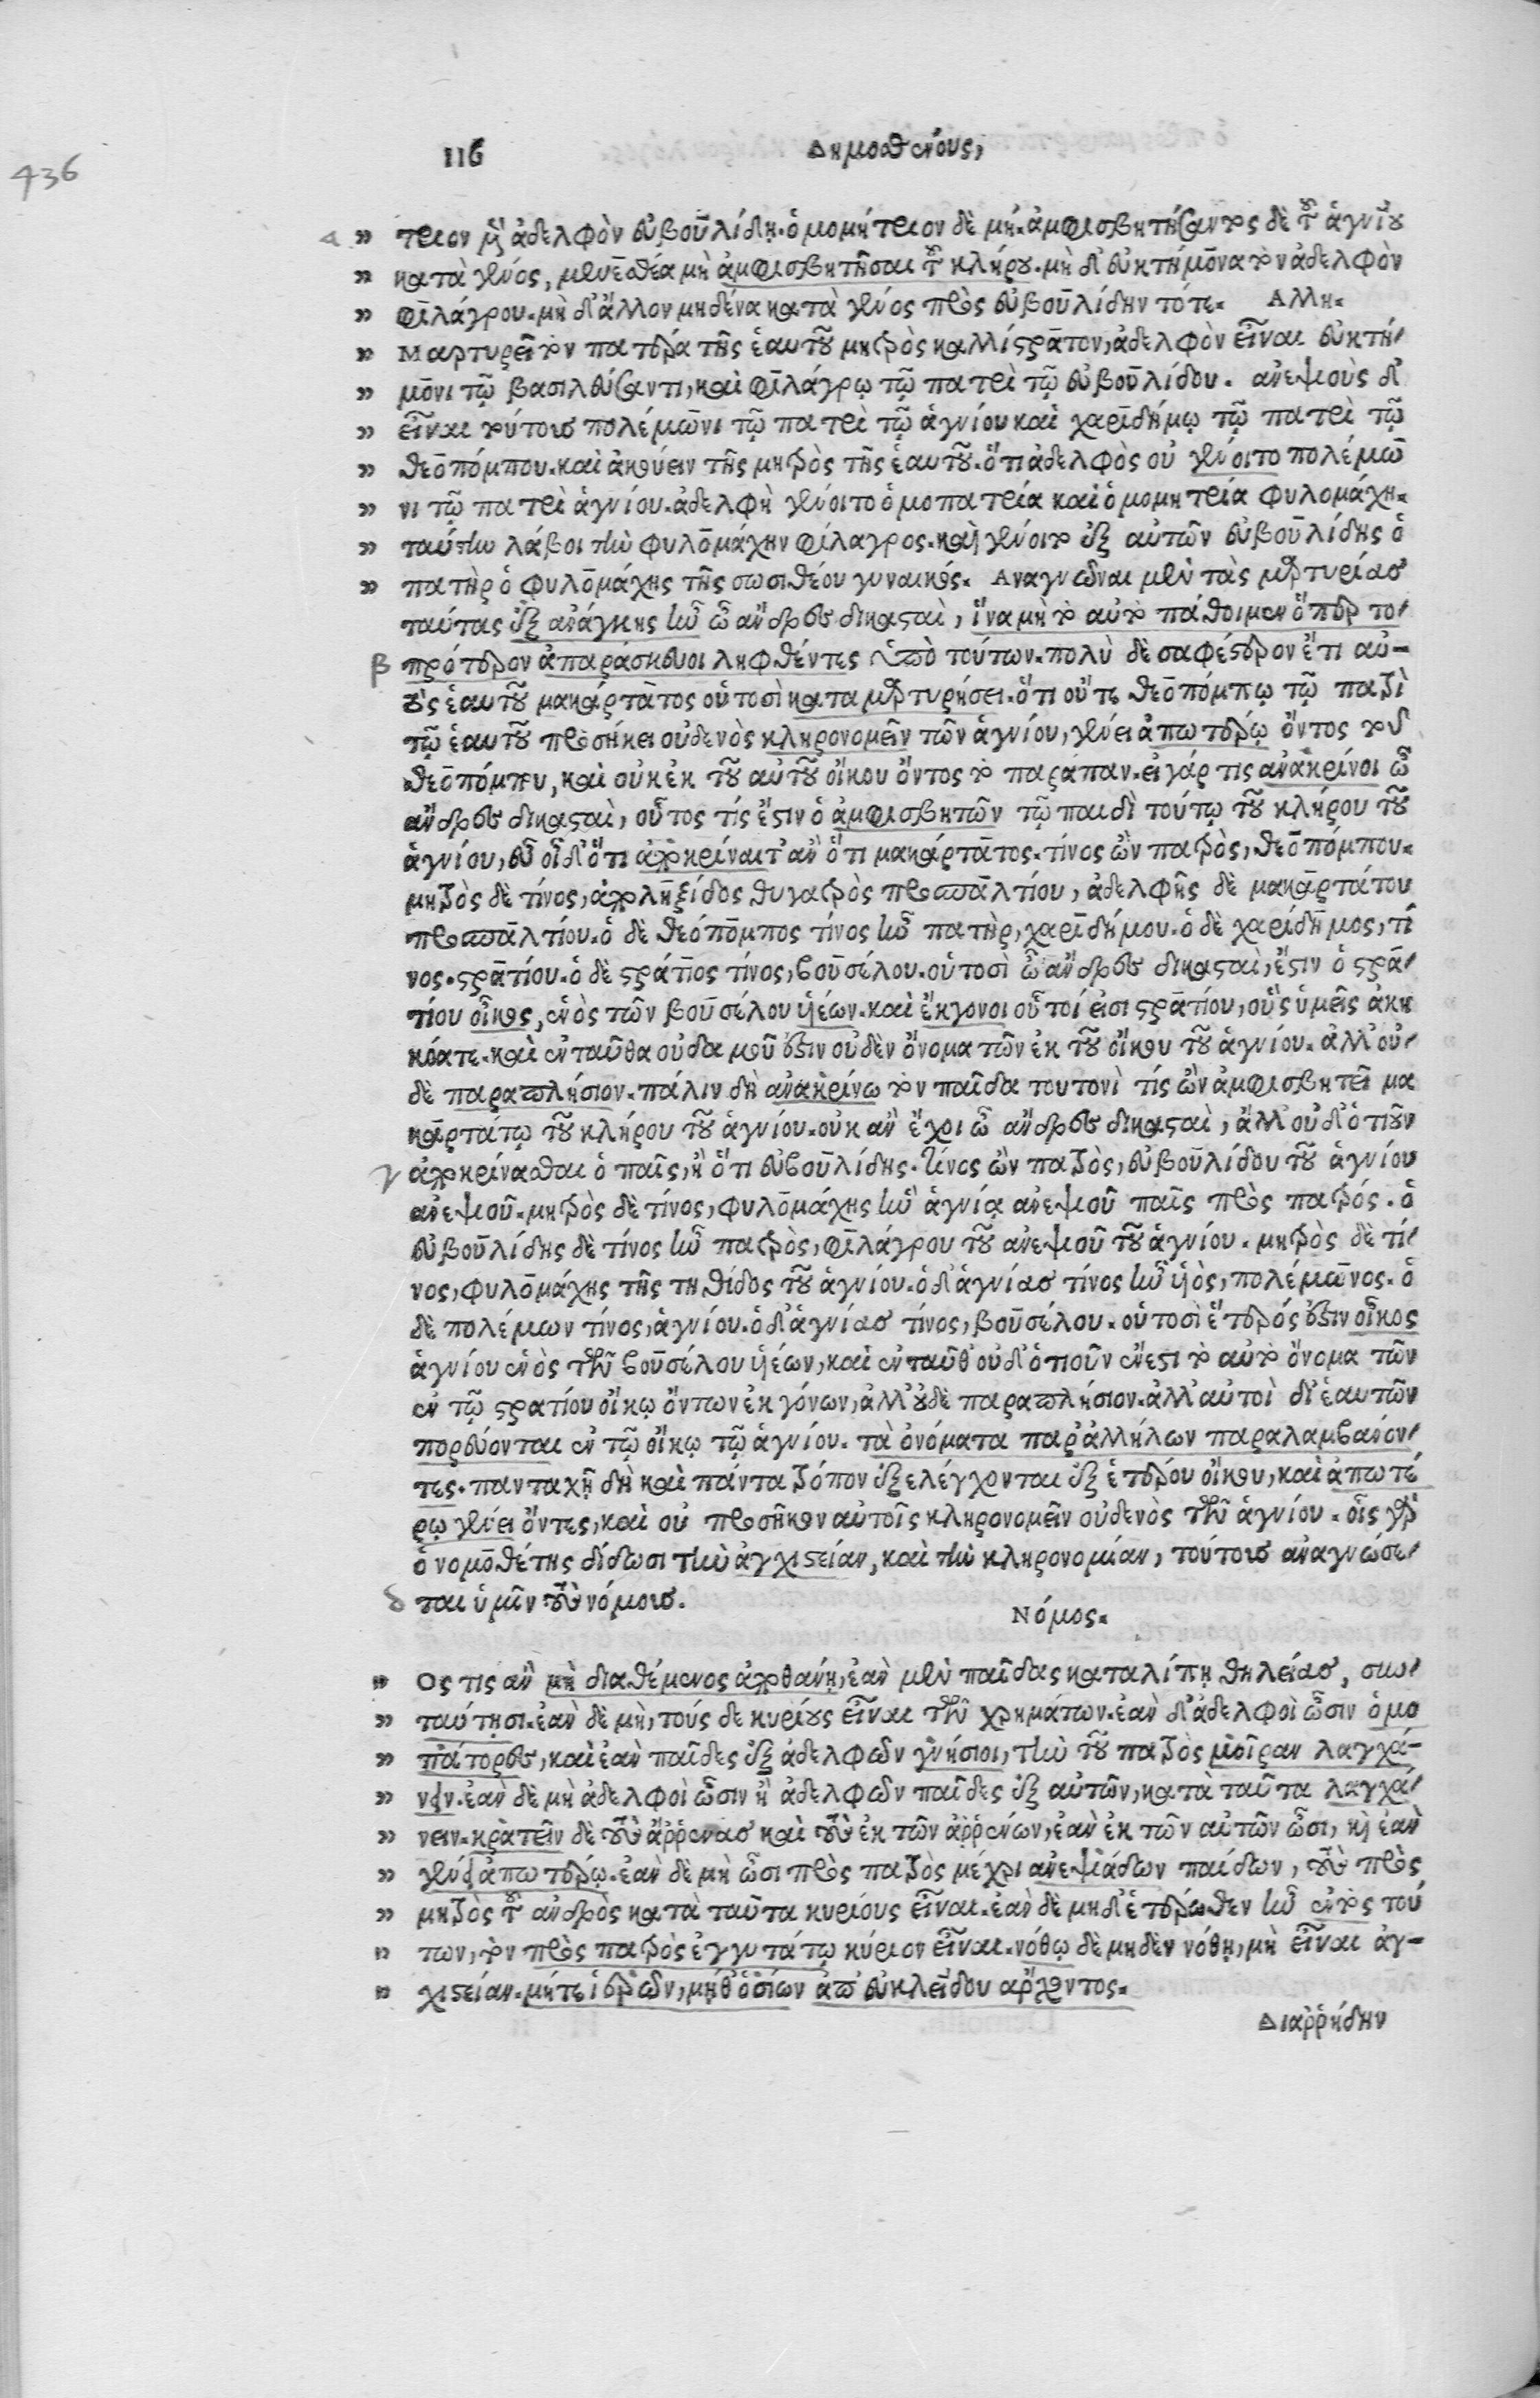 116 Δημοσθένους,
436
α » τριον μὲν ἀδελφὸν εὐβουλίδῃ. ὁμομήτριον δὲ μή. ἀμφισβητήσαντος δὲ τοῦ ἁγνίου
» κατὰ γένος, μενεσθέα μὴ ἀμφισβητῆσαι τοῦ κλήρου. μὴ δ' εὐκτήμονα τὸν ἀδελφὸν
» φιλάγρου. μὴ δ' ἄλλον μηδένα κατὰ γένος πρὸς εὐβουλίδην τότε. Αλλη.
» Μαρτυρεῖ τὸν πατέρα τῆς ἑαυτοῦ μητρὸς καλλίστρατον, ἀδελφὸν εἶναι εὐκτή
» μονι τῷ βασιλεύσαντι, καὶ φιλάγρῳ τῷ πατρὶ τῷ εὐβουλίδου. ἀνεψιοὺς δ'
» εἶναι τούτοις πολέμωνι τῷ πατρὶ τῷ ἁγνίου καὶ χαριδήμῳ τῷ πατρὶ τῷ
» θεοπόμπου. καὶ ἀκούειν τῆς μητρὸς τῆς ἑαυτοῦ. ὅτι ἀδελφὸς οὐ γένοιτο πολέμω
» νι τῷ πατρὶ ἁγνίου. ἀδελφὴ γένοιτο ὁμοπατρία καὶ ὁμομητρία φυλομάχη.
» ταύτην λάβοι τὴν φυλομάχην φίλαγρος. καὶ γένοιτο ἐξ αὐτῶν εὐβουλίδης ὁ
» πατὴρ ὁ φυλομάχης τῆς σωσιθέου γυναικός. Αναγνῶναι μὲν τὰς μαρτυρίας
ταύτας ἐξ ἀνάγκης ἦν ὦ ἄνδρες δικασταὶ, ἵνα μὴ τὸ αὐτὸ πάθοιμεν ὅπερ το
β πρότερον ἀπαράσκευοι ληφθέντες ὑπὸ τούτων. πολὺ δὲ σαφέστερον ἔτι αὐ-
τὸς ἑαυτοῦ μακάρτατος οὑτοσὶ καταμαρτυρήσει. ὅτι οὔτε θεοπόμπῳ τῷ πατρὶ
τῷ ἑαυτοῦ προσήκει οὐδενὸς κληρονομεῖν τῶν ἁγνίου, γένει ἀπωτέρω ὄντος τοῦ
θεοπόμπου, καὶ οὐκ ἐκ τοῦ αὐτοῦ οἴκου ὄντος τὸ παράπαν. εἰ γάρ τις ἀνακρίνοι ὦ
ἄνδρες δικασταὶ, οὗτος τίς ἔστιν ὁ ἀμφισβητῶν τῷ παιδὶ τούτῳ τοῦ κλήρου τοῦ
ἁγνίου, εὖ οἶδ' ὅτι ἀποκρίναιτ' ἂν ὅτι μακάρτατος. τίνος ὢν πατρὸς, θεοπόμπου.
μητρὸς δὲ τίνος, ἀποληξίδος θυγατρὸς προσπαλτίου, ἀδελφῆς δὲ μακαρτάτου
προσπαλτίου. ὁ δὲ θεόπομπος τίνος ἦν πατρὸς, χαριδήμου. ὁ δὲ χαρίδημος, τί
νος. στρατίου. ὁ δὲ στράτιος τίνος, βουσέλου. οὑτοσὶ ὦ ἄνδρες δικασταὶ, ἔστιν ὁ στρα
τίου οἶκος, ἑνὸς τῶν βουσέλου ὑέων. καὶ ἔκγονοι οὗτοί εἰσι στρατίου, οὓς ὑμεῖς ἀκη
κόατε. καὶ ἐνταῦθα οὐδαμοῦ ἐστιν οὐδὲν ὄνομα τῶν ἐκ τοῦ οἴκου τοῦ ἁγνίου. ἀλλ' οὐ
δὲ παραπλήσιον. πάλιν δὴ ἀνακρίνω τὸν παῖδα τουτονὶ τίς ὢν ἀμφισβητεῖ μα
καρτάτῳ τοῦ κλήρου τοῦ ἁγνίου. οὐκ ἂν ἔχοι ὦ ἄνδρες δικασταὶ, ἄλλ' οὐδ' ὁτιοῦν
γ ἀποκρίνασθαι ὁ παῖς, ἢ ὅτι εὐβουλίδης. τίνος ὢν πατρὸς, εὐβουλίδου τοῦ ἁγνίου
ἀνεψιοῦ. μητρὸς δὲ τίνος, φυλομάχης ἣν ἁγνίᾳ ἀνεψιοῦ παῖς πρὸς πατρός. ὁ
εὐβουλίδης δὲ τίνος ἦν πατρὸς, φιλάγρου τοῦ ἀνεψιοῦ τοῦ ἁγνίου. μητρὸς δὲ τί
νος, φυλομάχης τῆς τηθίδος τοῦ ἁγνίου. ὁ δ' ἁγνίας τίνος ἦν ὑὸς, πολέμωνος. ὁ
δὲ πολέμων τίνος, ἁγνίου. ὁ δ' ἁγνίας τίνος, βουσέλου. οὑτοσὶ ἕτερός ἐστιν οἶκος
ἁγνίου ἑνὸς τῶν βουσέλου ὑέων, καὶ ἐνταῦθ' οὐδ' ὁτιοῦν ἔνεστι τὸ αὐτὸ ὄνομα τῶν
ἐν τῷ στρατίου οἴκῳ ὄντων ἐκγόνων, ἀλλ' οὐδὲ παραπλήσιον. ἀλλ' αὐτοὶ δι' ἑαυτῶν
πορεύονται ἐν τῷ οἴκῳ τῷ ἁγνίου. τὰ ὀνόματα παρ' ἀλλήλων παραλαμβάνον
τες. πανταχῇ δὴ καὶ πάντα τρόπον ἐξελέγχονται ἐξ ἑτέρου οἴκου, καὶ ἀπωτέ
ρῳ γένει ὄντες, καὶ οὐ προσῆκον αὐτοῖς κληρονομεῖν οὐδενὸς τῶν ἁγνίου. οἷς γὰρ
ὁ νομοθέτης δίδωσι τὴν ἀγχιστείαν, καὶ τὴν κληρονομίαν, τούτοις ἀναγνώσε
δ ται ὑμῖν τοὺς νόμους.
Νόμος.
» Ος τις ἂν μὴ διαθέμενος ἀποθάνῃ, ἐὰν μὲν παῖδας καταλίπῃ θηλείας, σὺν
» ταύτησι. ἐὰν δὲ μὴ, τούς δε κυρίους εἶναι τῶν χρημάτων. ἐὰν δ' ἀδελφοὶ ὦσιν ὁμο
» πάτορες, καὶ ἐὰν παῖδες ἐξ ἀδελφῶν γνήσιοι, τὴν τοῦ πατρὸς μοῖραν λαγχά-
» νειν. ἐὰν δὲ μὴ ἀδελφοὶ ὦσιν ἢ ἀδελφῶν παῖδες ἐξ αὐτῶν, κατὰ ταῦτα λαγχά
» νειν. κρατεῖν δὲ τοὺς ἄῤῥενας καὶ τοὺς ἐκ τῶν ἀῤῥένων, ἐὰν ἐκ τῶν αὐτῶν ὦσι, καὶ ἐὰν
» γένει ἀπωτέρω. ἐὰν δὲ μὴ ὦσι πρὸς πατρὸς μέχρι ἀνεψιάδων παίδων, τοὺς πρὸς
» μητρὸς τοῦ ἀνδρὸς κατὰ ταῦτα κυρίους εἶναι. ἐὰν δὲ μηδ' ἑτέρωθεν ἦν ἐντὸς τού
» των, τὸν πρὸς πατρὸς ἐγγυτάτῳ κύριον εἶναι. νόθῳ δὲ μηδὲν νόθῃ, μὴ εἶναι ἀγ-
» χιστείαν. μήτε ἱερῶν, μήθ' ὁσίων ἀπ' εὐκλείδου ἄρχοντος.
Διαῤῥήδην